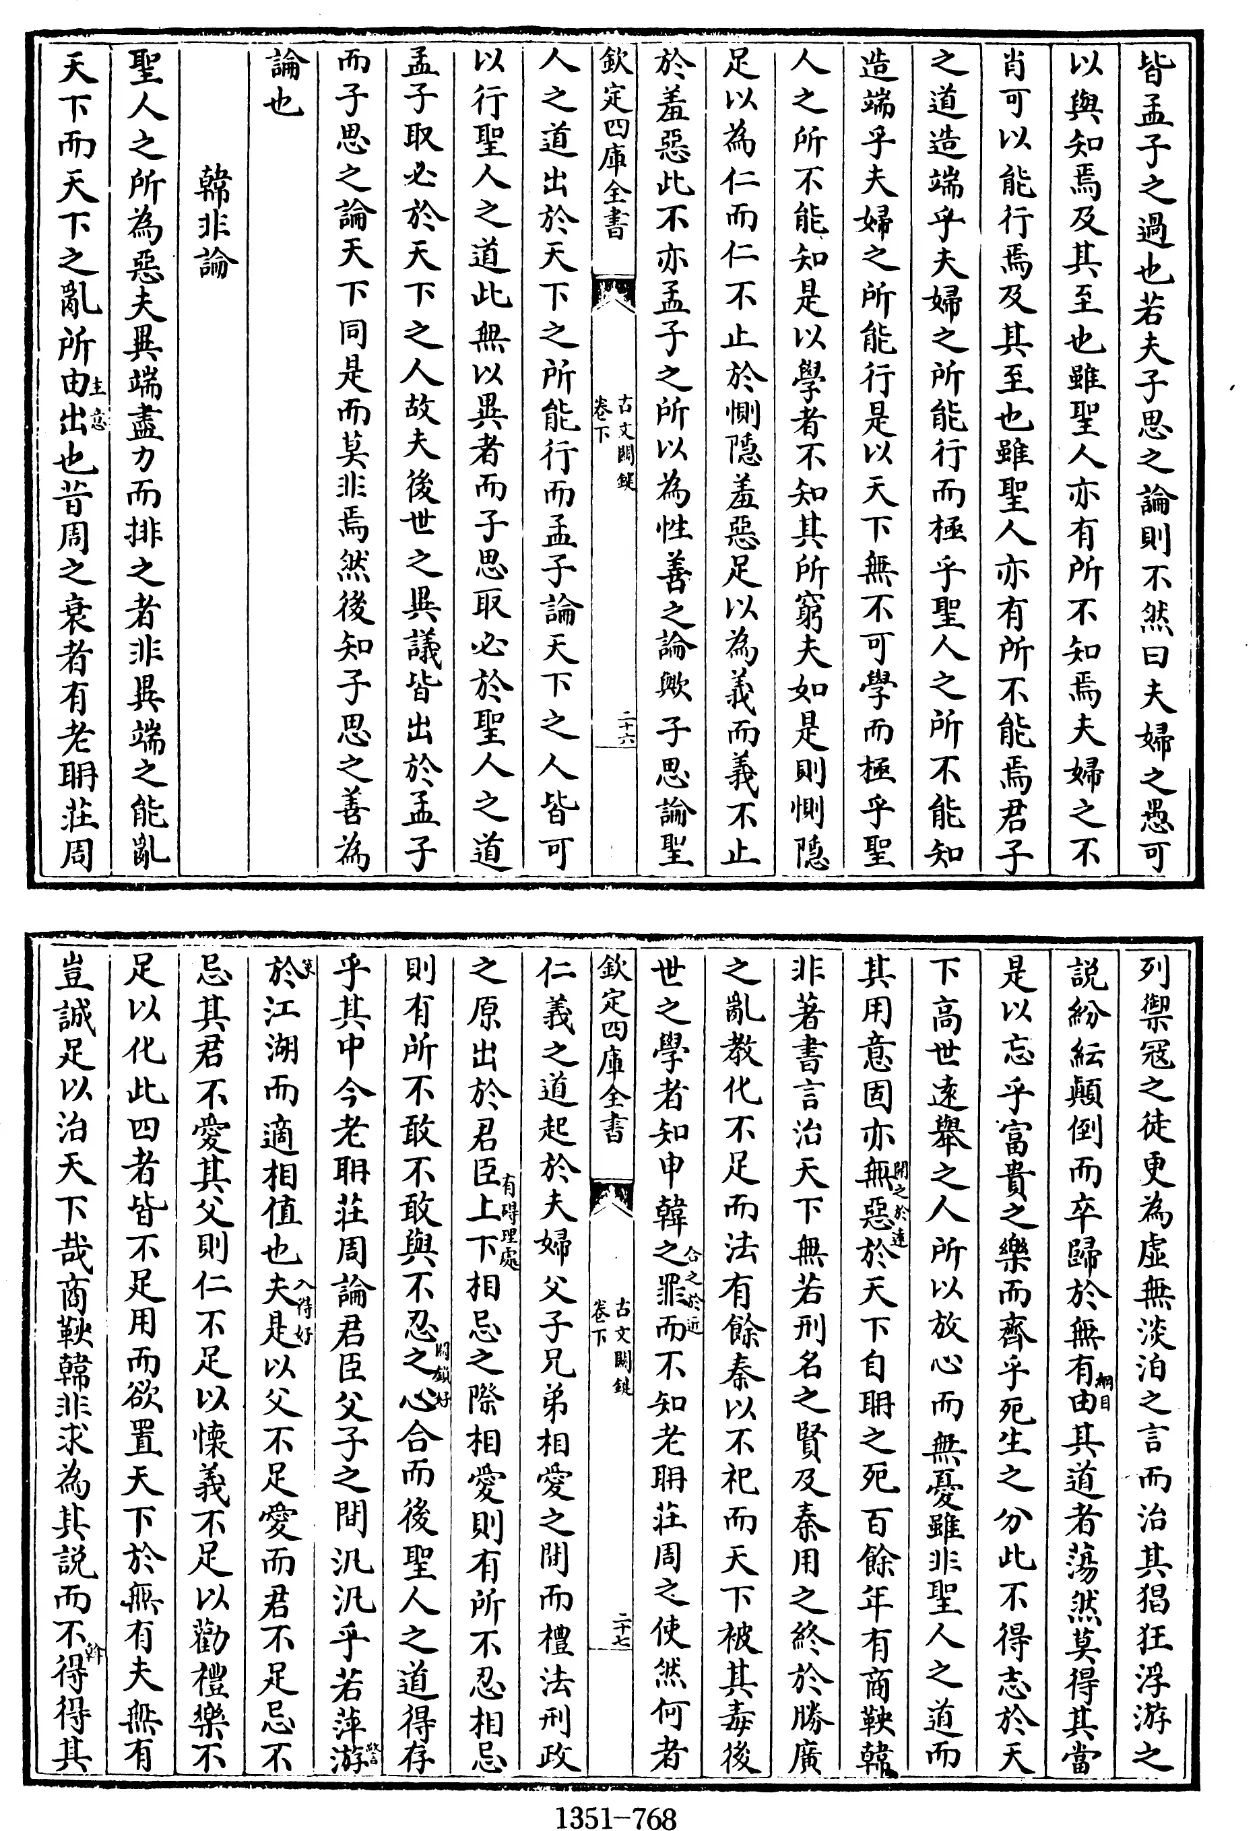 皆孟子之過也若夫子思之論則不然曰夫婦之愚可
以與知焉及其至也雖聖人亦有所不知焉夫婦之不
肖可以能行焉及其至也雖聖人亦有所不能焉君子
之道造端乎夫婦之所能行而極乎聖人之所不能知
造端乎夫婦之所能行是以天下無不可學而極乎聖
人之所不能知是以學者不知其所窮夫如是則惻隠
足以為仁而仁不止於惻隠羞惡足以為義而義不止
於羞惡此不亦孟子之所以為性善之論歟子思論聖
欽定四庫全書
古文關鍵
卷下
二十六
人之道出於天下之所能行而孟子論天下之人皆可
以行聖人之道此無以異者而子思取必於聖人之道
孟子取必於天下之人故夫後世之異議皆出於孟子
而子思之論天下同是而莫非焉然後知子思之善為
論也
韓非論
聖人之所為惡夫異端盡力而排之者非異端之能亂
天下而天下之亂所由主意出也昔周之衰者有老聃莊周
列禦冦之徒更為虛無淡泊之言而治其猖狂浮游之
説紛紜顛倒而卒歸於無有綱目由其道者蕩然莫得其當
是以忘乎富貴之樂而齊乎死生之分此不得志於天
下高世逺舉之人所以放心而無憂雖非聖人之道而
其用意固亦無開之於逺惡於天下自聃之死百餘年有商鞅韓
非著書言治天下無若刑名之賢及秦用之終於勝廣
之亂教化不足而法有餘秦以不祀而天下被其毒後
世之學者知申韓之合之於近罪而不知老聃莊周之使然何者
欽定四庫全書
古文關鍵
卷下
二十七
仁義之道起於夫婦父子兄弟相愛之間而禮法刑政
之原出於君臣有碍理處上下相忌之際相愛則有所不忍相忌
則有所不敢不敢與不忍之關鎖好心合而後聖人之道得存
乎其中今老聃莊周論君臣父子之間汎汎乎若萍游警言
於江湖而適相值也夫入得好是以父不足愛而君不足忌不
忌其君不愛其父則仁不足以懐義不足以勸禮樂不
足以化此四者皆不足用而欲置天下於無有夫無有
豈誠足以治天下哉商鞅韓非求為其説而不斡得得其
1351-768